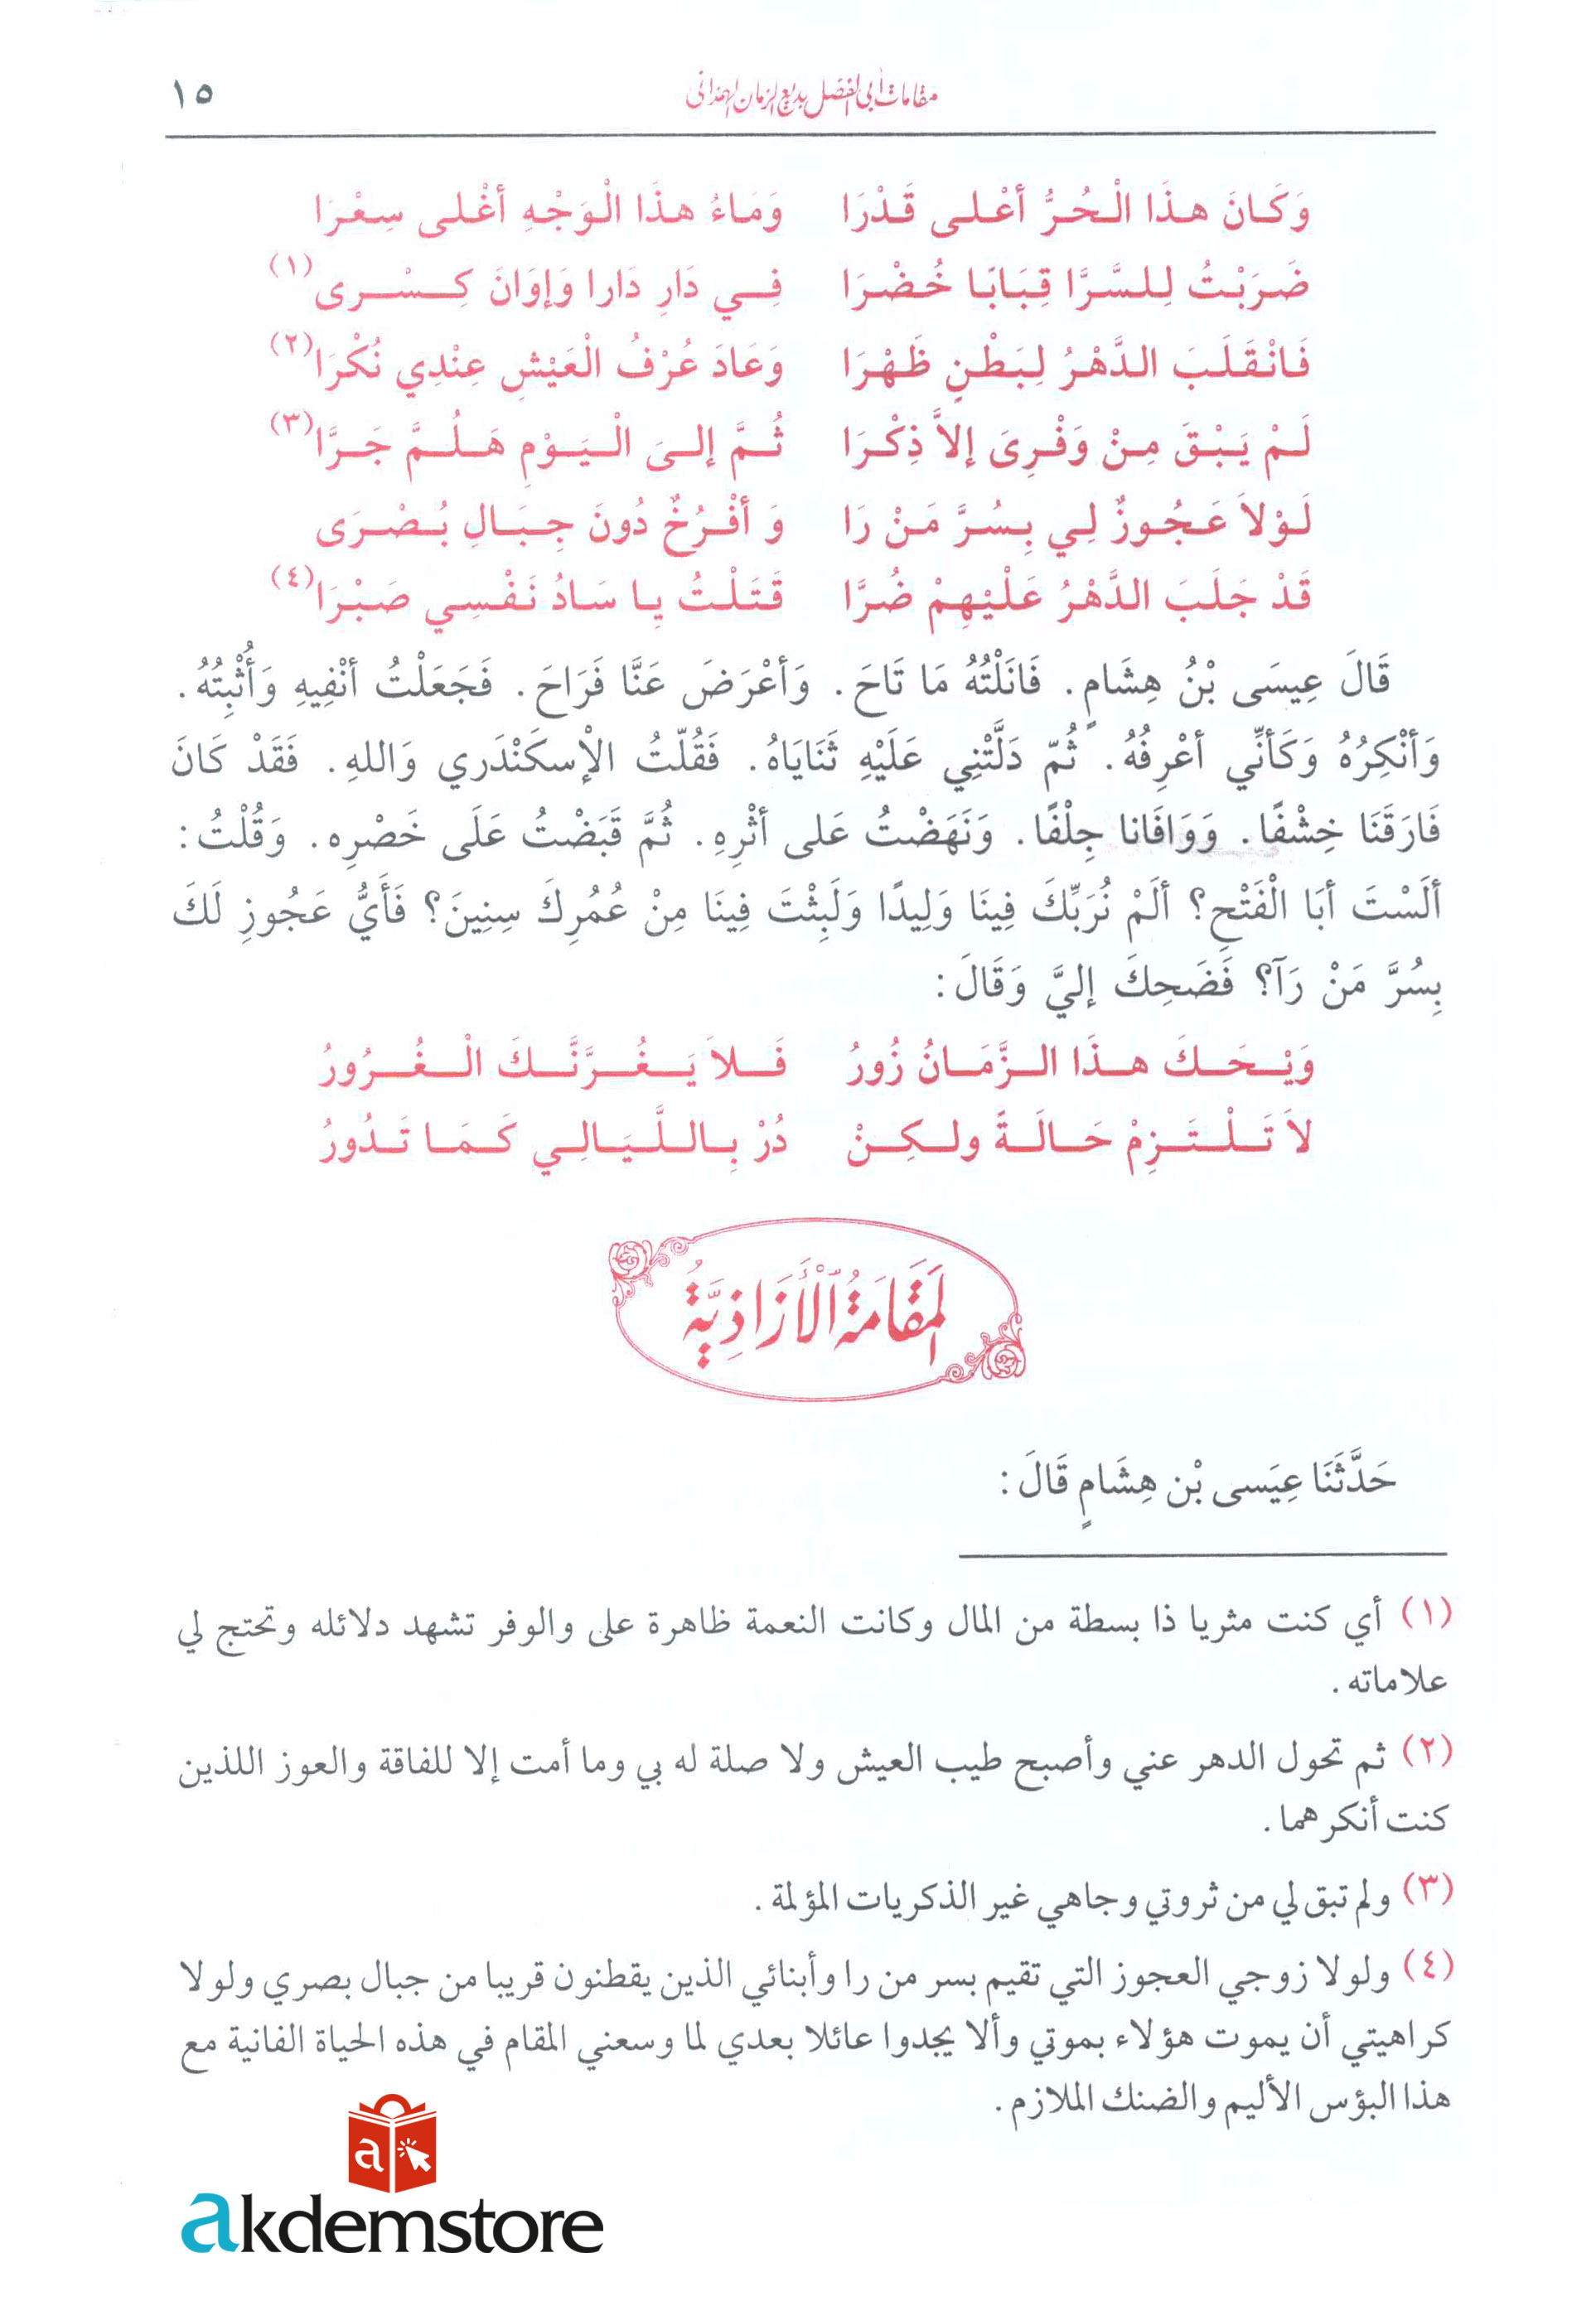 مقامات أبي الفضل بديع الزمان الهمذاني ١٥
وَكَانَ هذَا الْحُرُّ أعْلى قَدْرَا وَمَاءُ هذَا الْوَجْهِ أغْلى سِعْرَا
ضَرَبْتُ لِلسَّرَّا قِبَابًا خُضْرَا فِي دَارِ دَارا وَإوَانَ كِسْرى (١)
فَانْقَلَبَ الدَّهْرُ لِبَطْنٍ ظَهْرَا وَعَادَ عُرْفُ الْعَيْشِ عِنْدِي نُكْرَا (٢)
لَمْ يَبْقَ مِنْ وَفْرِىَ إلاَّ ذِكْرَا ثُمَّ إلىَ الْيَوْمِ هَلُمَّ جَرَّا (٣)
لَوْلاَ عَجُوزٌ لِي بِسُرَّ مَنْ رَا وَ أفْرُخٌ دُونَ جِبَالِ بُصْرَى
قَدْ جَلَبَ الدَّهْرُ عَلَيْهِمْ ضُرَّا قَتَلْتُ يا سَادُ نَفْسِي صَبْرَا (٤)
قَالَ عِيسَى بْنُ هِشَامٍ. فَانَلْتُهُ مَا تَاحَ. وَأعْرَضَ عَنَّا فَرَاحَ. فَجَعَلْتُ أنْفِيهِ وَأُثْبِتُهُ.
وَأنْكِرُهُ وَكَأنِّي أعْرِفُهُ. ثُمّ دَلَّتْنِي عَلَيْهِ ثَنَايَاهُ. فَقُلّتُ الإْسكَنْدَري وَاللهِ. فَقَدْ كَانَ
فَارَقَنَا خِشْفًا. وَوَافَانا جِلْفًا. وَنَهَضْتُ عَلى أثْرِهِ. ثُمَّ قَبَضْتُ عَلَى خَصْرِه. وَقُلْتُ:
ألَسْتَ أبَا الْفَتْحِ؟ ألَمْ نُرَبِّكَ فِينَا وَلِيدًا وَلَبِثْتَ فِينَا مِنْ عُمُرِكَ سِنِينَ؟ فَأَيُّ عَجُوزِ لَكَ
بِسُرَّ مَنْ رَآ؟ فَضَحِكَ إليَّ وَقَالَ:
وَيْحَكَ هذَا الزَّمَانُ زُورُ فَلاَ يَغُرَّنَّكَ الْغُرُورُ
لاَ تَلْتَزِمْ حَالَةً ولكِنْ دُرْ بِاللَّيَالِي كَمَا تَدُورُ
المَقَامَةُ الْأَزَاذِيَّةُ
حَدَّثَنَا عِيَسى بْن هِشَامٍ قَالَ:
(١) أي كنت مثريا ذا بسطة من المال وكانت النعمة ظاهرة على والوفر تشهد دلائله وتحتج لي
علاماته.
(٢) ثم تحول الدهر عني وأصبح طيب العيش ولا صلة له بي وما أمت إلا للفاقة والعوز اللذين
كنت أنكرهما.
(٣) ولم تبق لي من ثروتي وجاهي غير الذكريات المؤلمة.
(٤) ولولا زوجي العجوز التي تقيم بسر من را وأبنائي الذين يقطنون قريبا من جبال بصري ولولا
كراهيتي أن يموت هؤلاء بموتي وألا يجدوا عائلا بعدي لما وسعني المقام في هذه الحياة الفانية مع
هذا البؤس الأليم والضنك الملازم.
a
akdemstore